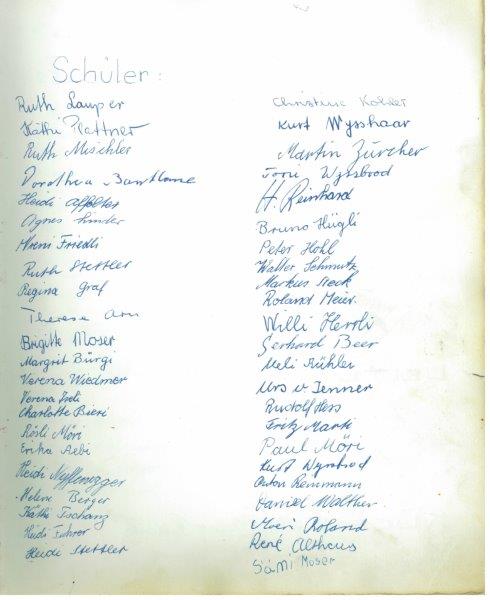 Schüler:
Ruth Lauper
Käthi Plattner
Ruth Mischler
Dorothea
Heidi Affolter
Agnes Linder
Vreni Friedli
Ruth Stettler
Regina Graf
Therese Arn
Brigitte Moser
Margrit Bürgi
Verena Wiedmer
Verena
Charlotte Bieri
Rösli Möri
Erika Aebi
Heidi
Helene Berger
Käthi Tschanz
Heidi Fuhrer
Heidi Stettler
Christine Kohler
Kurt Wysshaar
Martin Zürcher
Toni Wynbrod
H. Reinhard
Bruno Hügli
Peter Hohl
Walter Schmutz
Markus Steck
Roland Meier.
Willi Herrli
Gerhard Beer
Ueli Bühler
Urs v Jenner
Rudolf Hess
Fritz Marti
Paul Möri
Kurt Wynbrod
Anton
Daniel Walther
Moeri Roland
René Althaus
Sämi Moser